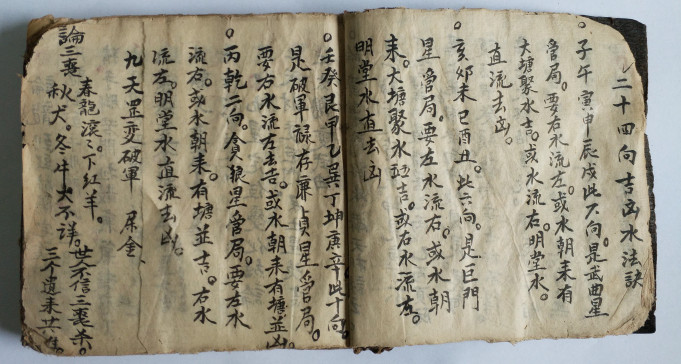 二十四向吉凶水法訣
子午寅申辰戌此六向。是武曲星
管局。要右水流左。或水朝来有
大塘聚水吉。或水流右。明堂水。
直流去凶。
亥卯未巳酉丑。此六向。是巨門
星管局。要左水流右。或水朝
来。大塘聚水並吉。或右水流左。
明堂水直去凶
壬癸艮甲乙巽丁坤庚辛此十向。
是破軍祿存廉貞星管局。
要右水流左去吉。或水朝来有塘並凶
丙乾二向。貪狼星管局。要左水
流右。或水朝来。有塘並吉。右水
流左。明堂水直流去凶。
九天罡変破軍 屎金、
論三喪 春龍滾々下紅羊。
秋犬。冬牛大不詳。世人不信三喪
三个